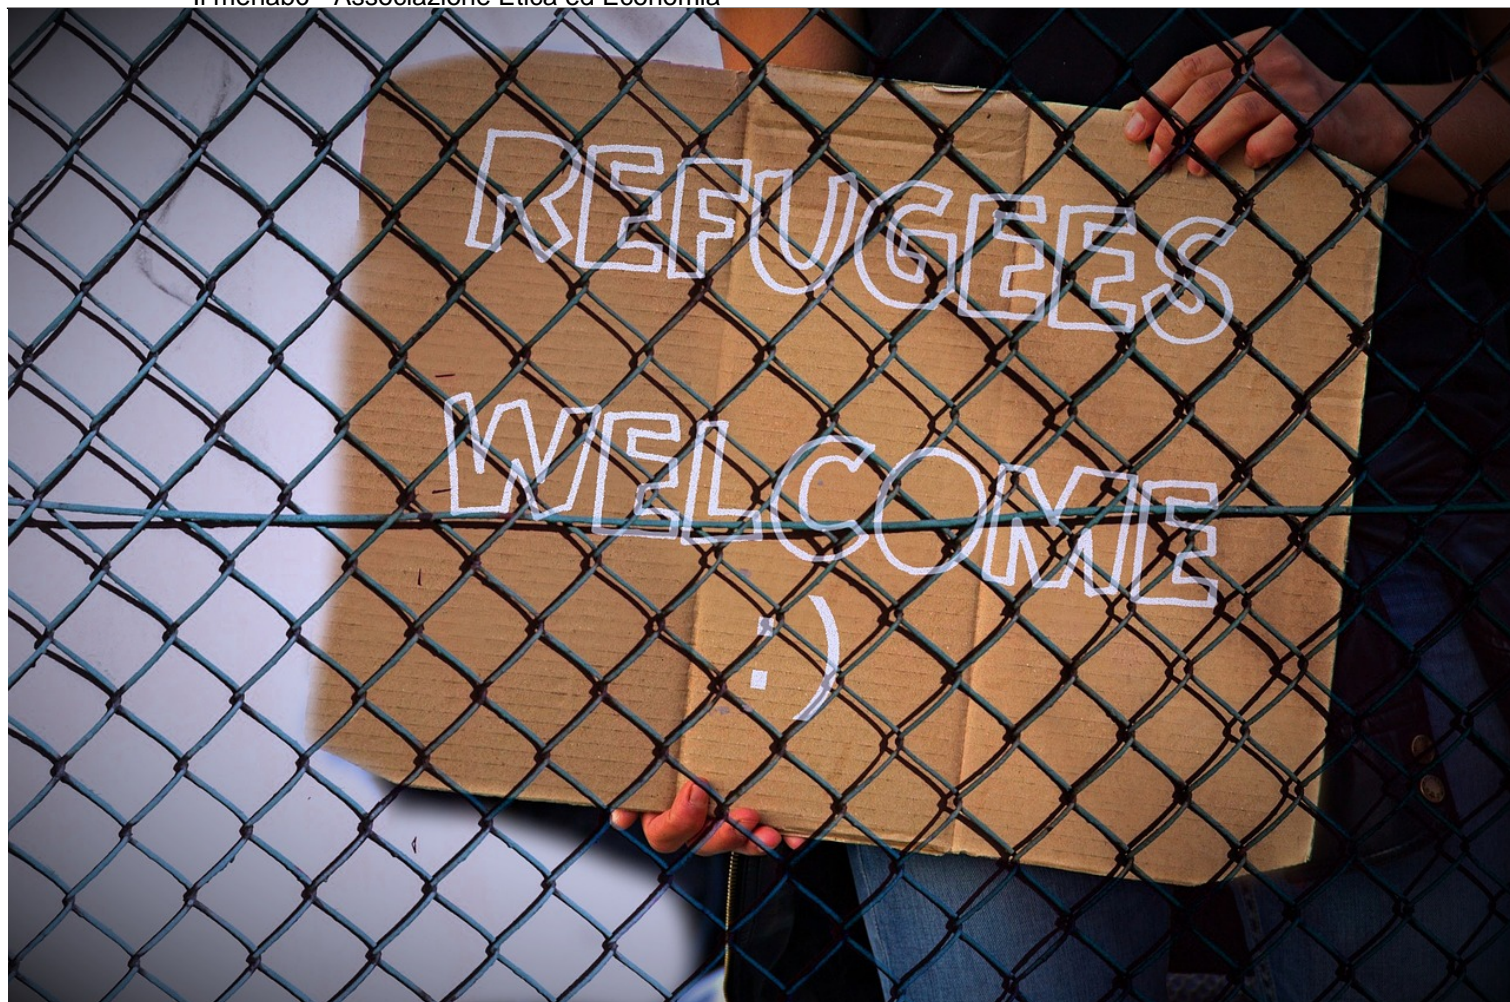 Il menabò - Associazione Etica ed Economia
REFUGEES
WELCOME
:)